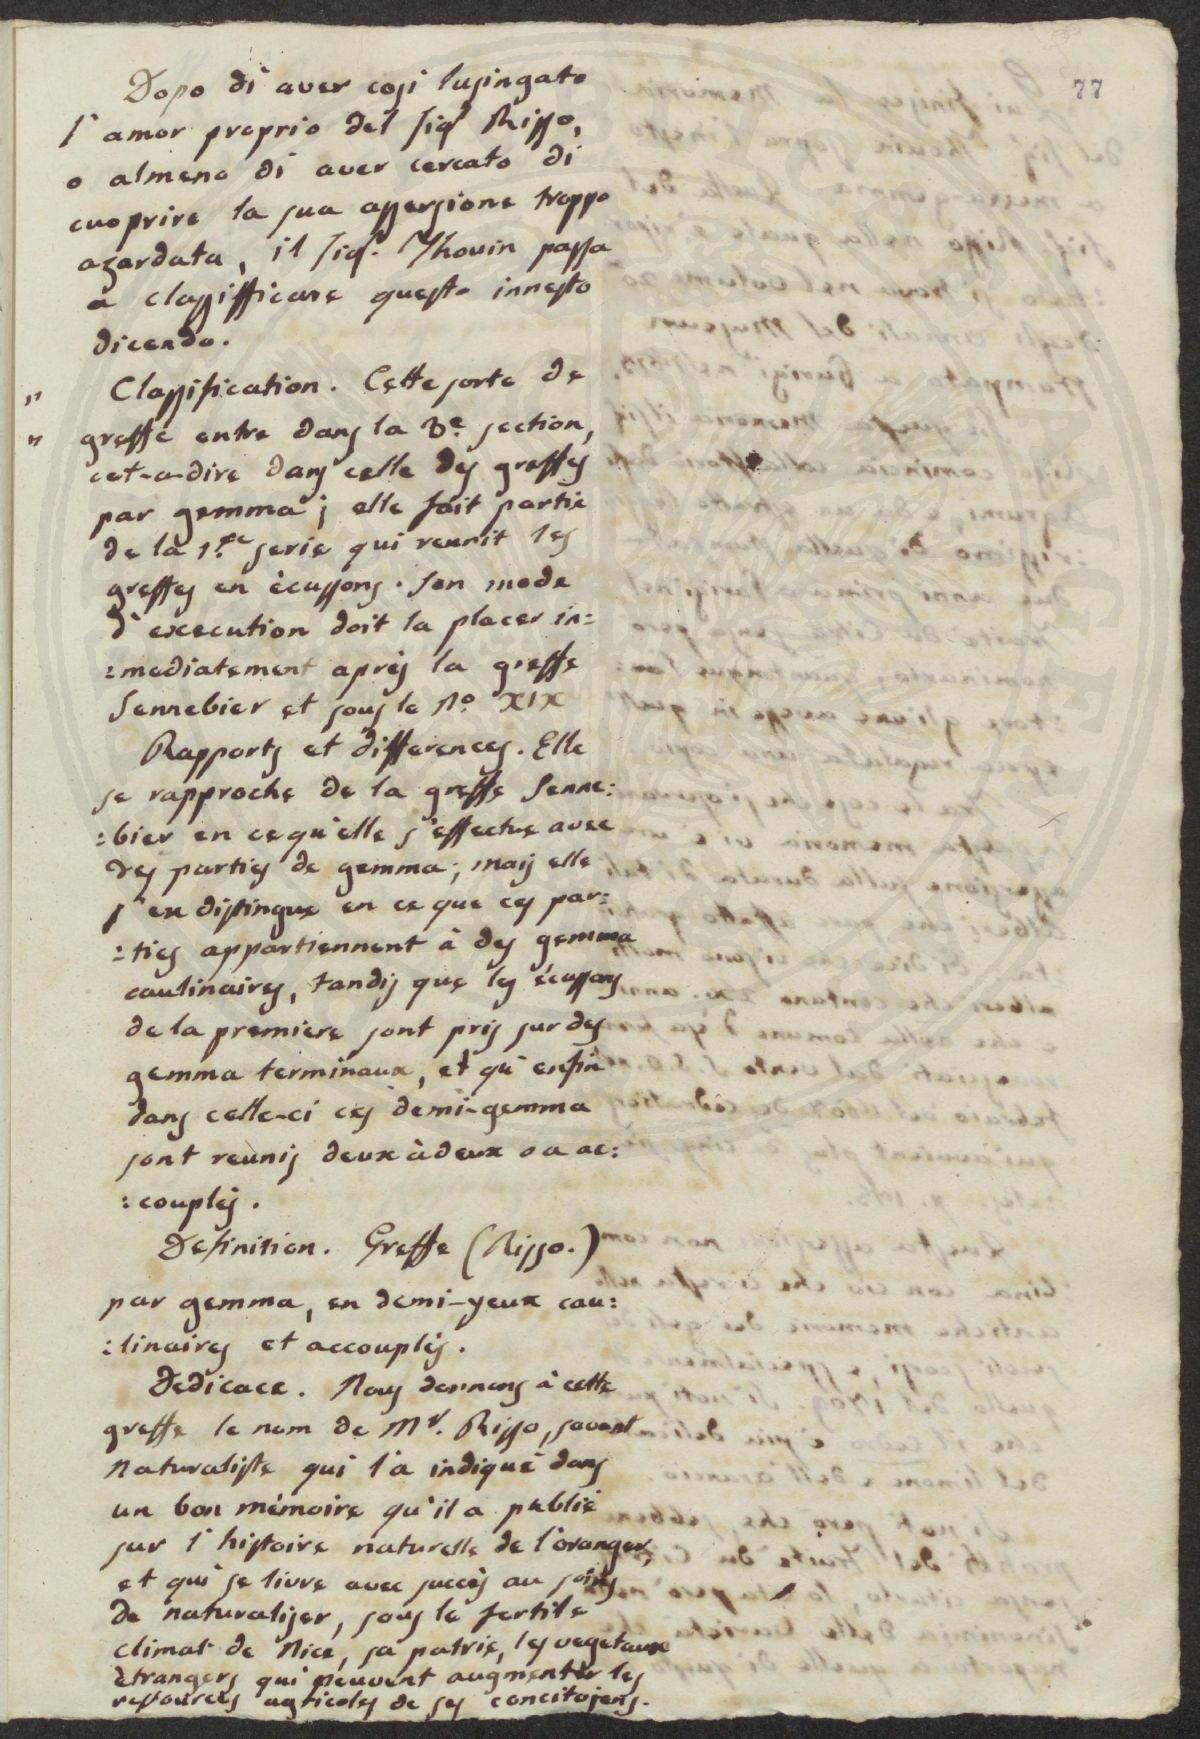 77
Dopo di aver cosi lusingato
l'amor proprio del Sigr Risso,
o almeno di aver cercato di
cuoprire la sua assersione troppo
azardata, il Sigr. Thouin passa
a classifficare questo innesto
dicendo.
" Classification. Cette sorte de
" greffe entre dans la 3e. section,
cet-a-dire dans celle des greffes
par gemma; elle fait partie
de la 1.re serie qui reunit les
greffes en ècussons. Son mode
d'execution doit la placer im:
:mediatement après la greffe
Sennebier et sous le No. XIX
Rapports et differences. Elle
se rapproche de la greffe Senne:
:bier en ce qu'elle s'effectue avec
des parties de gemma; mais elle
s'en distingue en ce que ces par:
:ties appartiennent à des gemma
caulinaires, tandis que les écussons
de la premiere sont pris sur des
gemma terminaux, et qu'enfin
dans celle-ci ces demi-gemma
sont reunis deux à deux ou ac:
:couplés.
Definition. Greffe (Risso.)
par gemma, en demi-yeux cau:
:linaires et accouplés.
Dedicace. Nous donnons à cette
greffe le nom de Mr. Risso, savant
Naturaliste qui l'a indiqué dans
un bon mémoire qu'il a publié
sur l'histoire naturelle de l'oranger,
et qui se livre avec succès au soins
de naturaliser, sous le fertile
climat de Nice, sa patrie, les vegetaux
ètrangers qui peuvent augmenter les
ressources agricoles de ses concitojens.